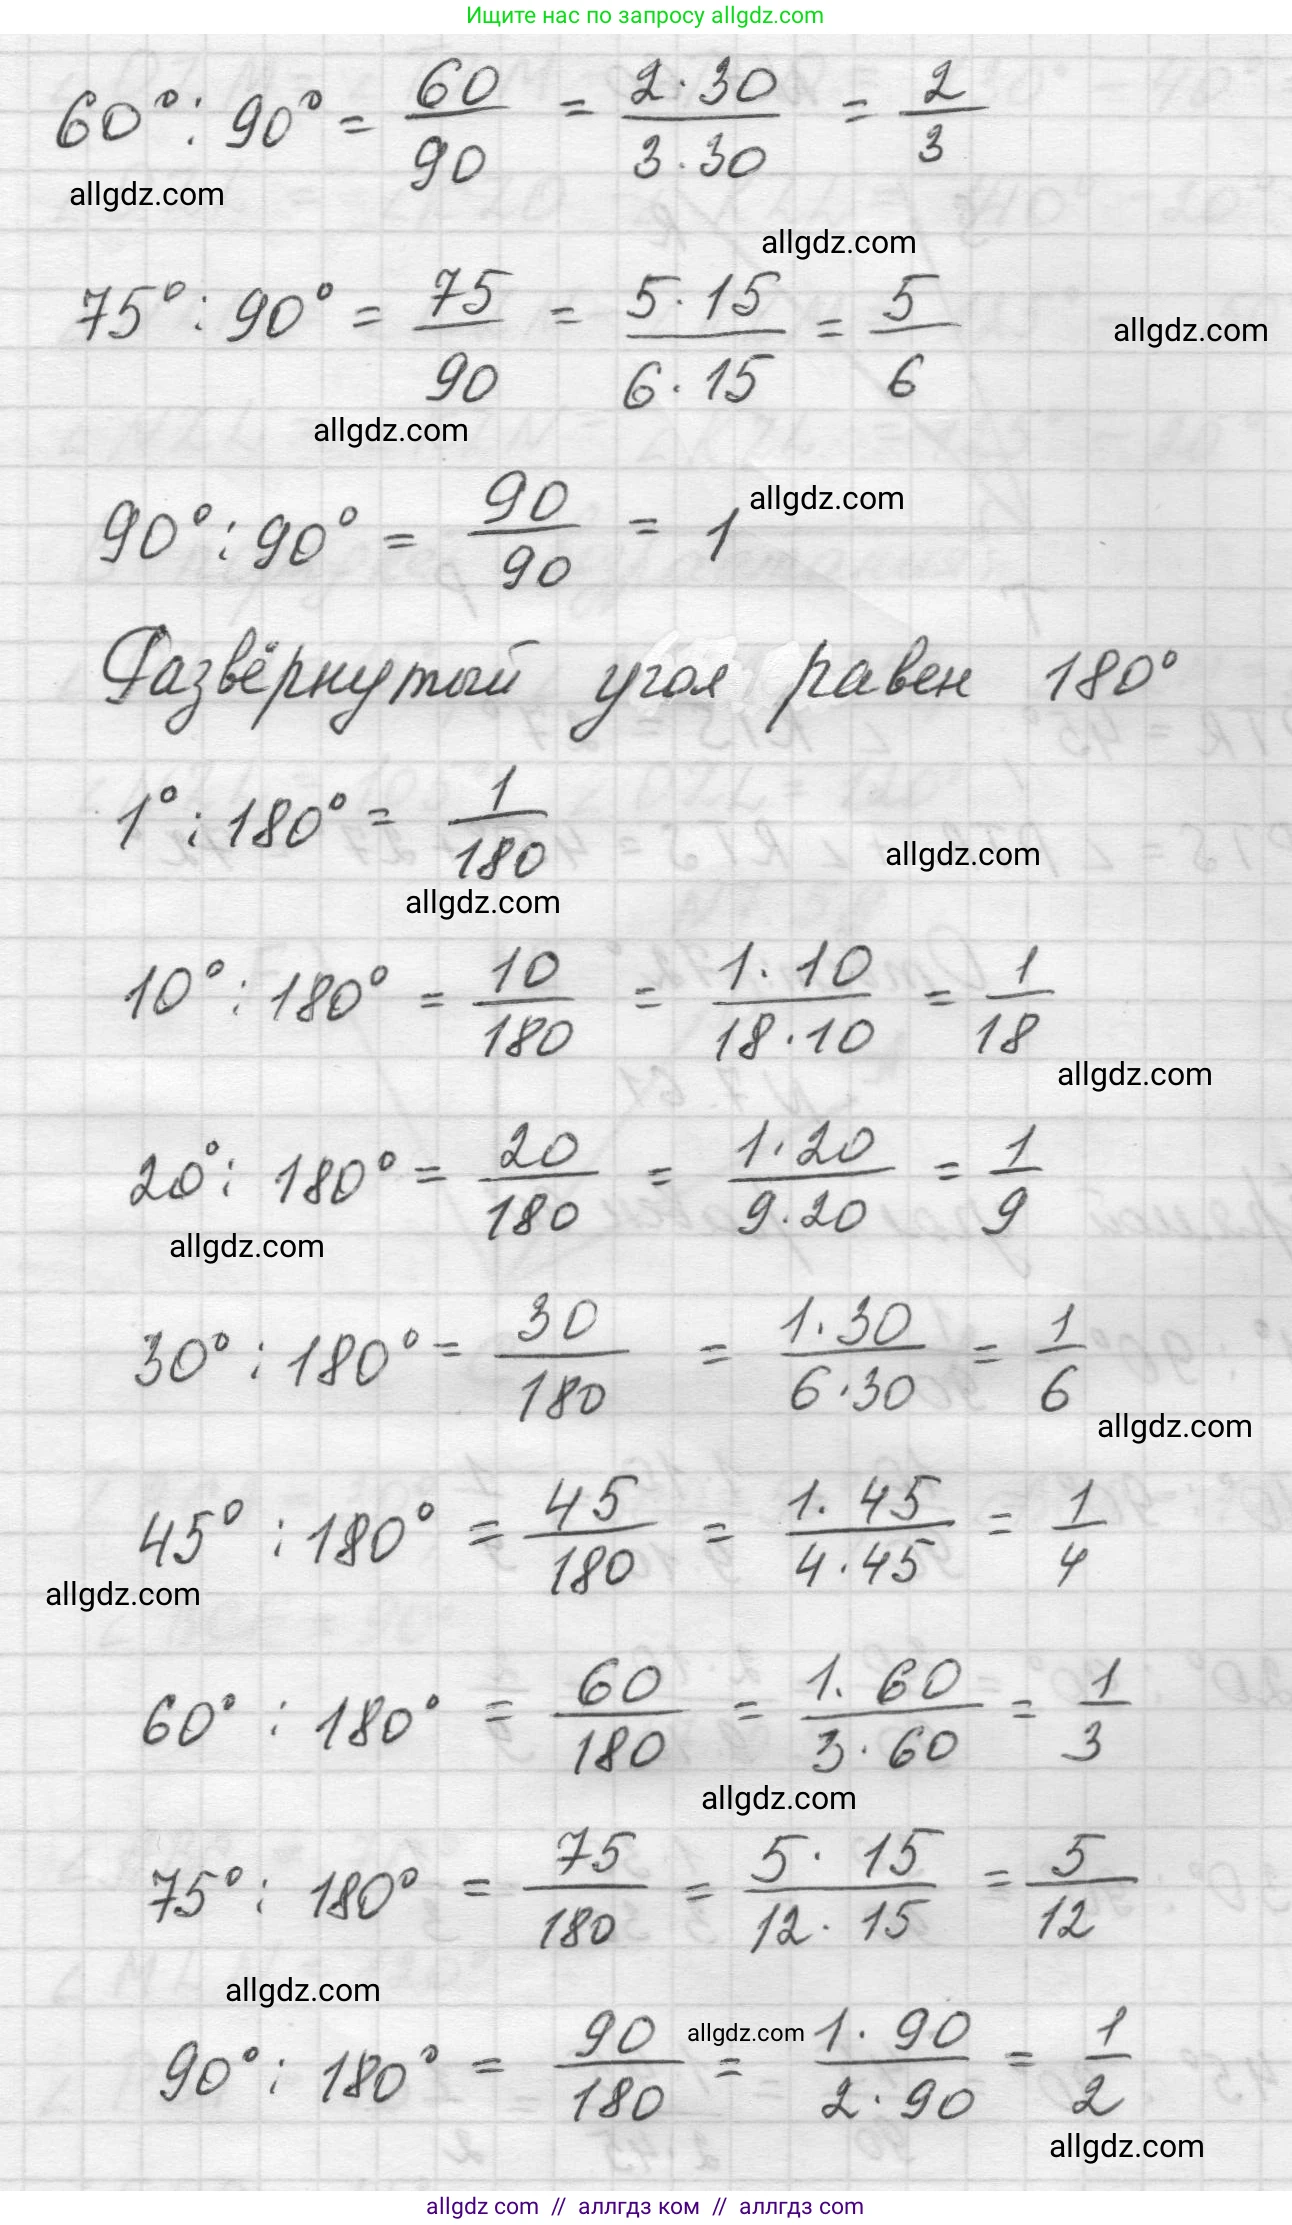 Ищите нас по запросу allgdz.com
60° : 90° = 60/90 = 2·30/3·30 = 2/3
allgdz.com
allgdz.com
75° : 90° = 75/90 = 5·15/6·15 = 5/6
allgdz.com
allgdz.com
90° : 90° = 90/90 = 1
allgdz.com
Развёрнутый угол равен 180°
1° : 180° = 1/180
allgdz.com
allgdz.com
10° : 180° = 10/180 = 1·10/18·10 = 1/18
allgdz.com
20° : 180° = 20/180 = 1·20/9·20 = 1/9
allgdz.com
30° : 180° = 30/180 = 1·30/6·30 = 1/6
allgdz.com
45° : 180° = 45/180 = 1·45/4·45 = 1/4
allgdz.com
60° : 180° = 60/180 = 1·60/3·60 = 1/3
allgdz.com
75° : 180° = 75/180 = 5·15/12·15 = 5/12
allgdz.com
allgdz.com
90° : 180° = 90/180 = 1·90/2·90 = 1/2
allgdz.com
allgdz com // аллгдз ком // аллгдз com